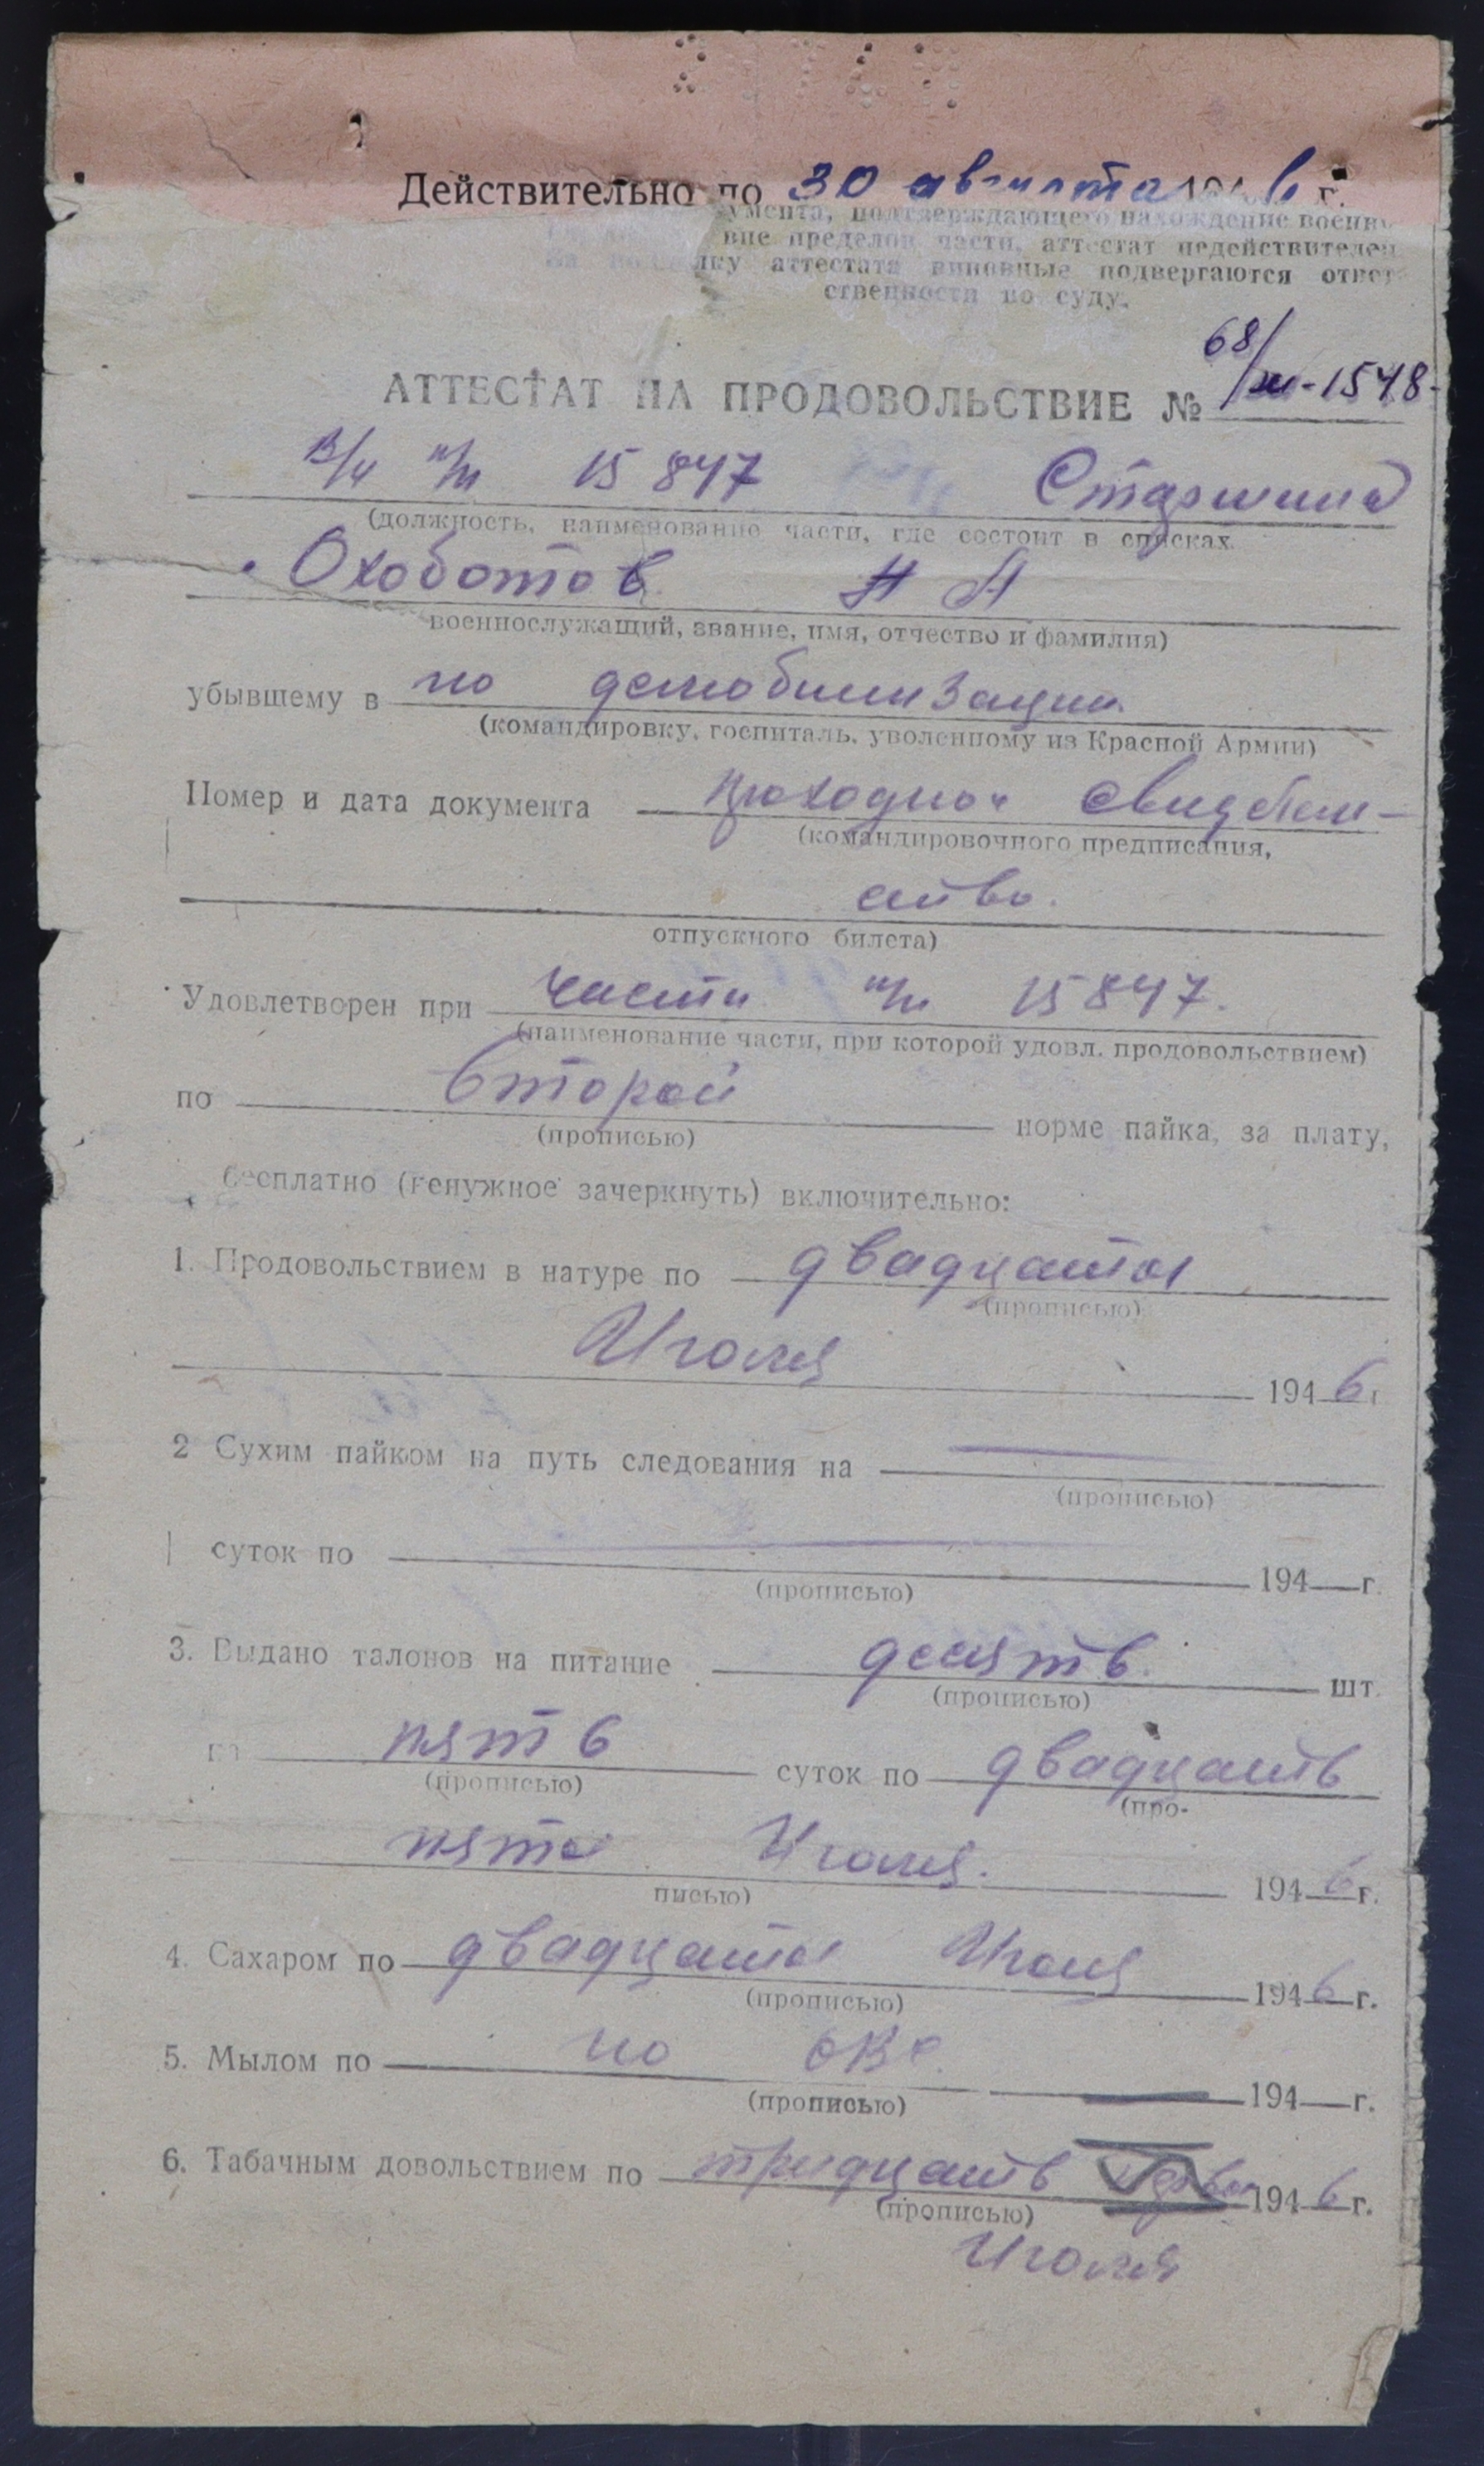 Действительно по 30 августа 194 6 г.
умента, подтверждающего нахождение военн
вне пределов части, аттестат недействителен
аттестата виновные подвергаются ответ
ственности по суду.
АТТЕСТАТ НА ПРОДОВОЛЬСТВИЕ № 68/ -1548-
В/Ч п/п 15847 Старшина
(должность, наименование части, где состоит в списках.
Охоботов Н А
военнослужащий, звание, имя, отчество и фамилия)
убывшему в по демобилизации
(командировку, госпиталь, уволенному из Красной Армии)
Номер и дата документа проходное свидетель-
(командировочного предписания,
ство.
отпускного билета)
Удовлетворен при части п/п 15847.
(наименование части, при которой удовл. продовольствием)
по второй норме пайка, за плату,
(прописью)
бесплатно (ненужное зачеркнуть) включительно:
1. Продовольствием в натуре по двадцатое
(прописью)
Июля 194 6 г
2 Сухим пайком на путь следования на —
(прописью)
суток по — 194 — г.
(прописью)
3. Выдано талонов на питание десять шт.
(прописью)
на пять суток по двадцать
(прописью) (про-
пятое Июля. 194 6 г.
писью)
4. Сахаром по двадцатое Июля 194 6 г.
(прописью)
5. Мылом по по ОВС. 194 — г.
(прописью)
6. Табачным довольствием по тридцать 194 6 г.
(прописью)
Июля